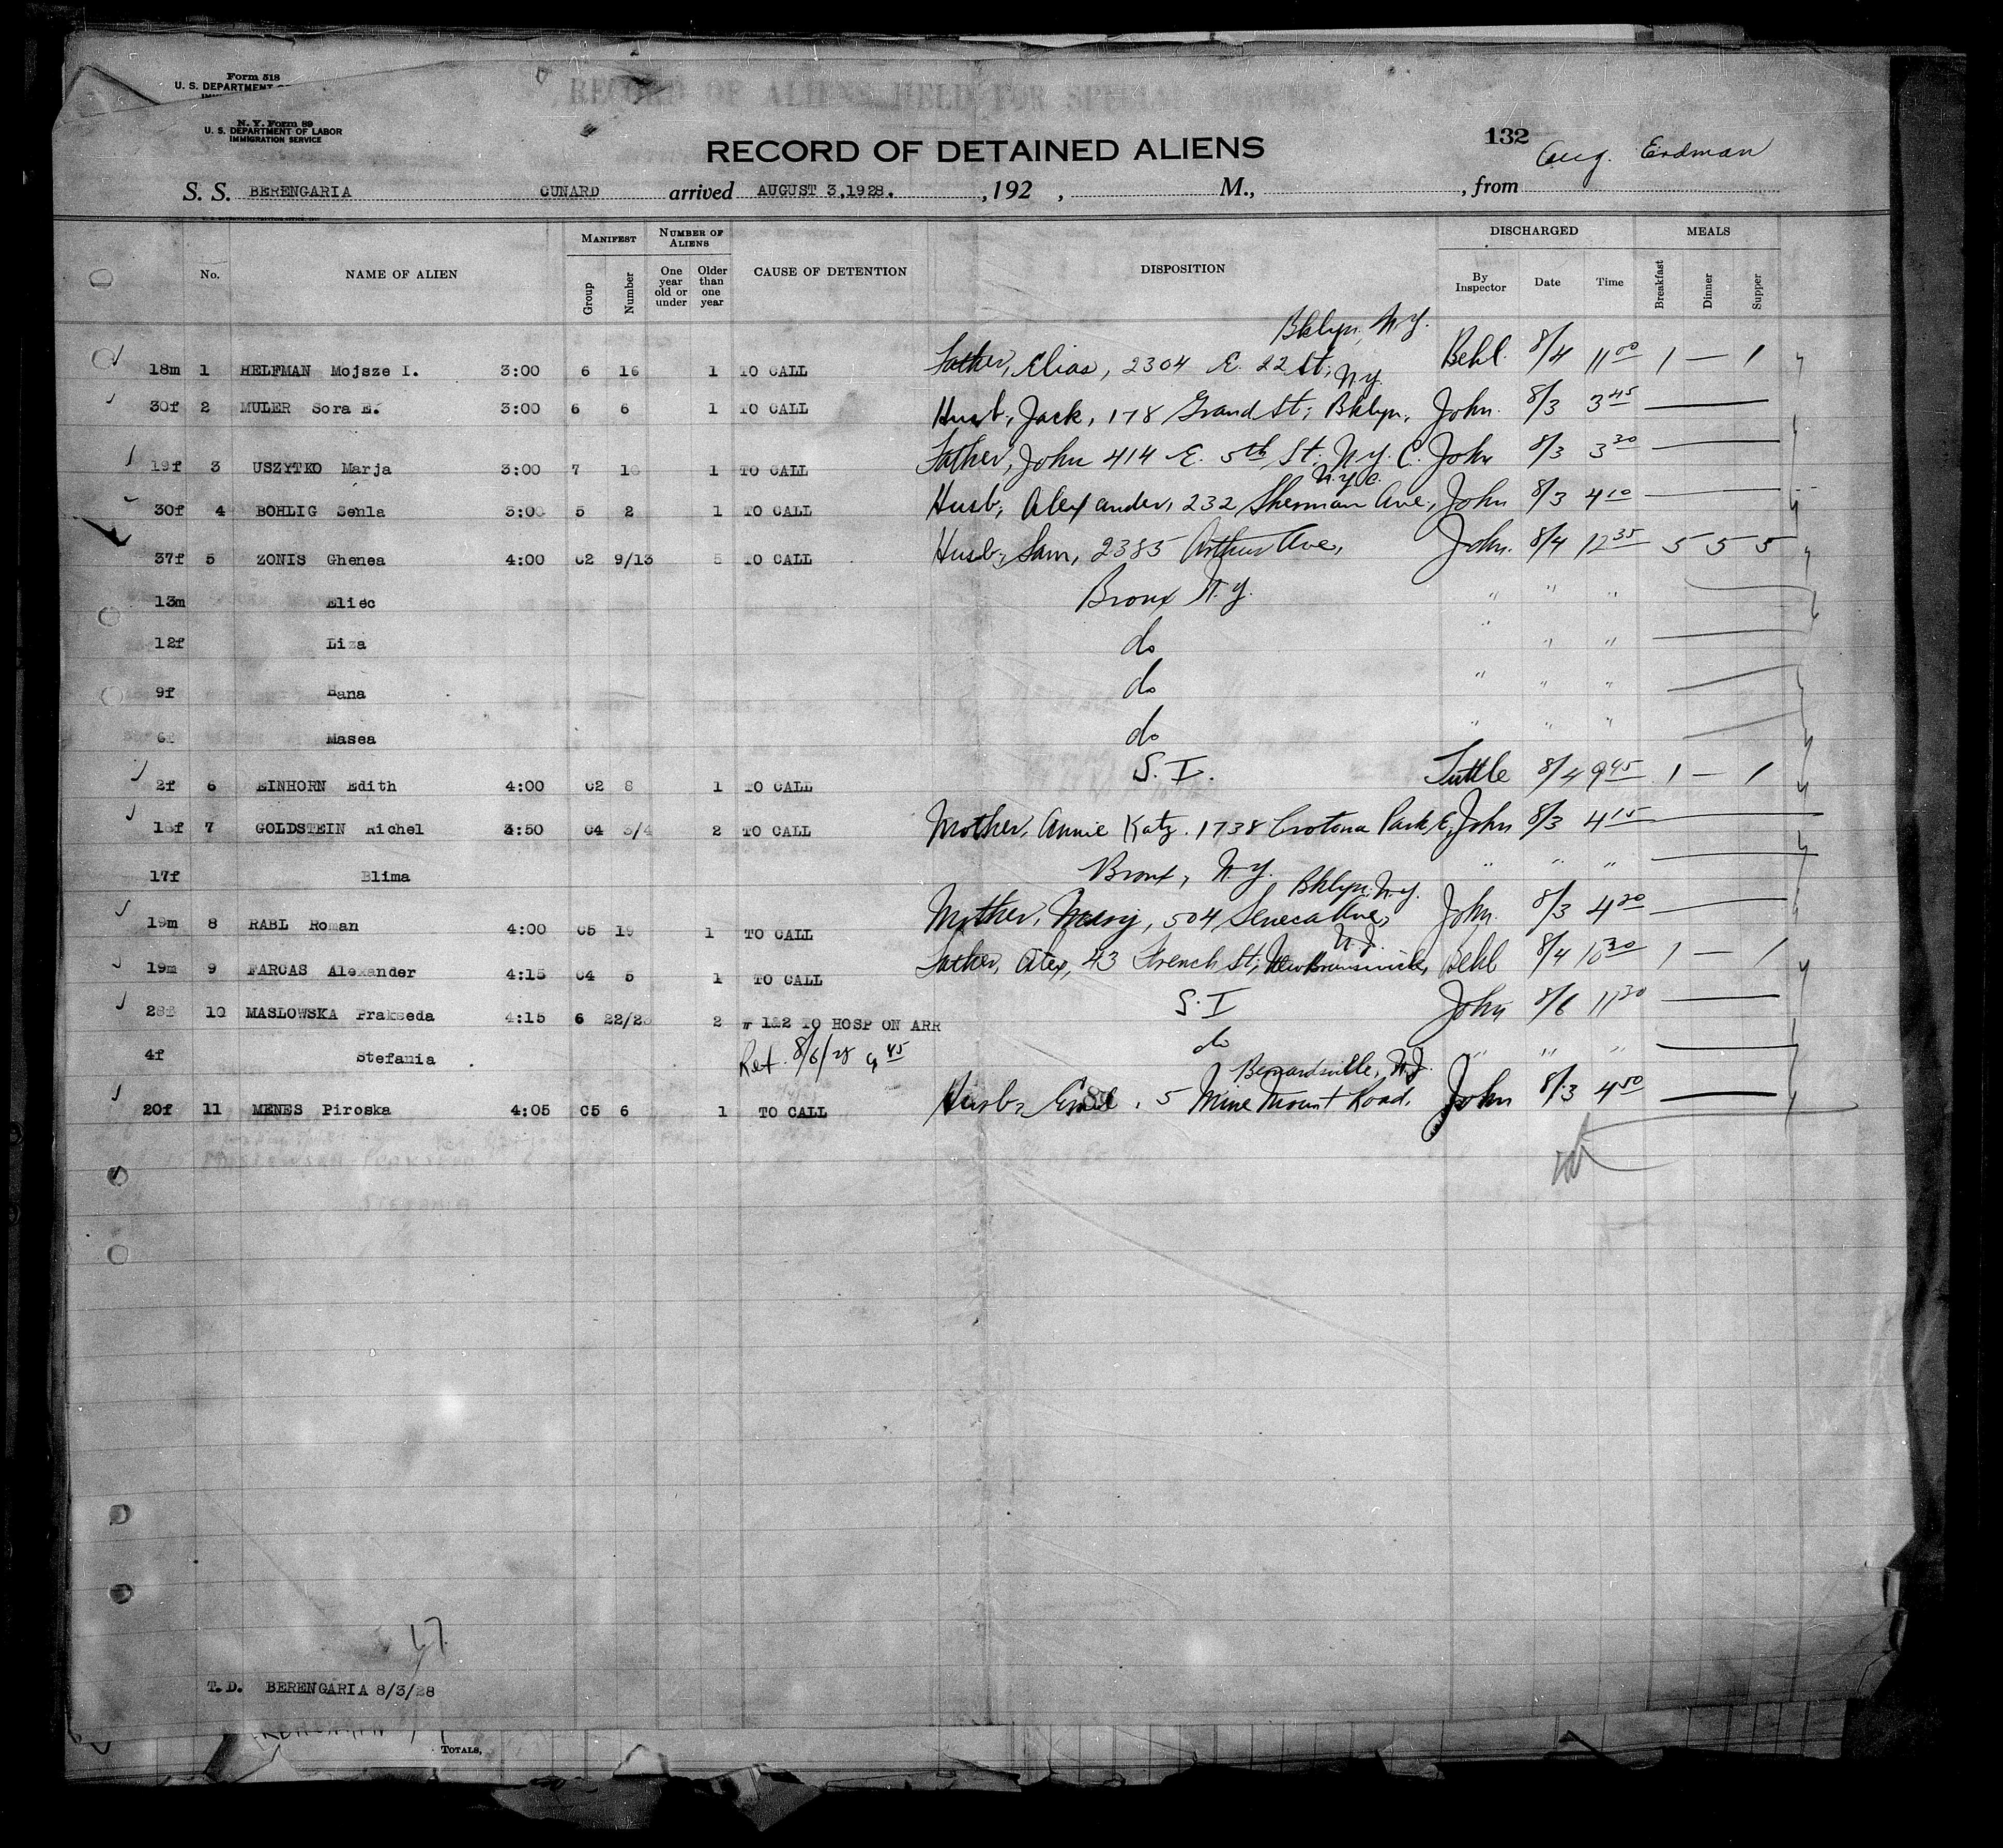 Form 518
U. S. DEPARTMENT
N. Y. Form 89
U. S. DEPARTMENT OF LABOR
IMMIGRATION SERVICE
RECORD OF ALIENS HELD FOR SPECIAL INQUIRY
RECORD OF DETAINED ALIENS
132 Aug. Erdman
S. S. BERENGARIA CUNARD arrived AUGUST 3, 1928. , 192 , M., , from
No. NAME OF ALIEN MANIFEST Group Number NUMBER OF ALIENS One year old or under Older than one year CAUSE OF DETENTION DISPOSITION DISCHARGED By Inspector Date Time MEALS Breakfast Dinner Supper
Bklyn, N.Y.
18m 1 HELFMAN Mojsze I. 3:00 6 16 1 TO CALL Father, Elias, 2304 E. 22 St, Behl. 8/4 11 00 1 — 1
N.Y.
30f 2 MULER Sora E. 3:00 6 6 1 TO CALL Husb, Jack, 178 Grand St, Bklyn, John. 8/3 3 45
19f 3 USZYTKO Marja 3:00 7 1 TO CALL Father, John 414 E. 5th St. N.Y.C. John 8/3 3 30
N.Y.C.
30f 4 BOHLIG Senla 3:00 5 2 1 TO CALL Husb, Alexander, 232 Sherman Ave, John 8/3 4 10
37f 5 ZONIS Ghenea 4:00 C2 9/13 5 TO CALL Husb, Sam, 2385 Arthur Ave, John. 8/4 12 35 5 5 5
13m Eliec Bronx N.Y. " " "
12f Liza do " " "
9f Hana do " " "
6f Masea do " " "
2f 6 EINHORN Edith 4:00 C2 8 1 TO CALL S. I. Tuttle 8/4 9 45 1 — 1
18f 7 GOLDSTEIN Richel 3:50 C4 3/4 2 TO CALL Mother, Annie Katz. 1738 Crotona Park E, John 8/3 4 15
17f Blima Bronx, N.Y. " " "
Bklyn, N.Y.
19m 8 RABL Roman 4:00 C5 19 1 TO CALL Mother, Mary, 504 Seneca Ave, John. 8/3 4 20
N.J.
19m 9 FARCAS Alexander 4:15 C4 5 1 TO CALL Father, Alex, 43 French St, New Brunswick, Behl 8/4 10 30 1 — 1
28f 10 MASLOWSKA Prakseda 4:15 6 22/23 2 1&2 TO HOSP ON ARR S. I John 8/6 11 30
4f Stefania Ret. 8/6/28 9 45 do " " "
Bernardsville, N.J.
20f 11 MENES Piroska 4:05 C5 6 1 TO CALL Husb, Emil, 5 Mine Mount Road, John 8/3 4 50
T.D. BERENGARIA 8/3/28
TOTALS,